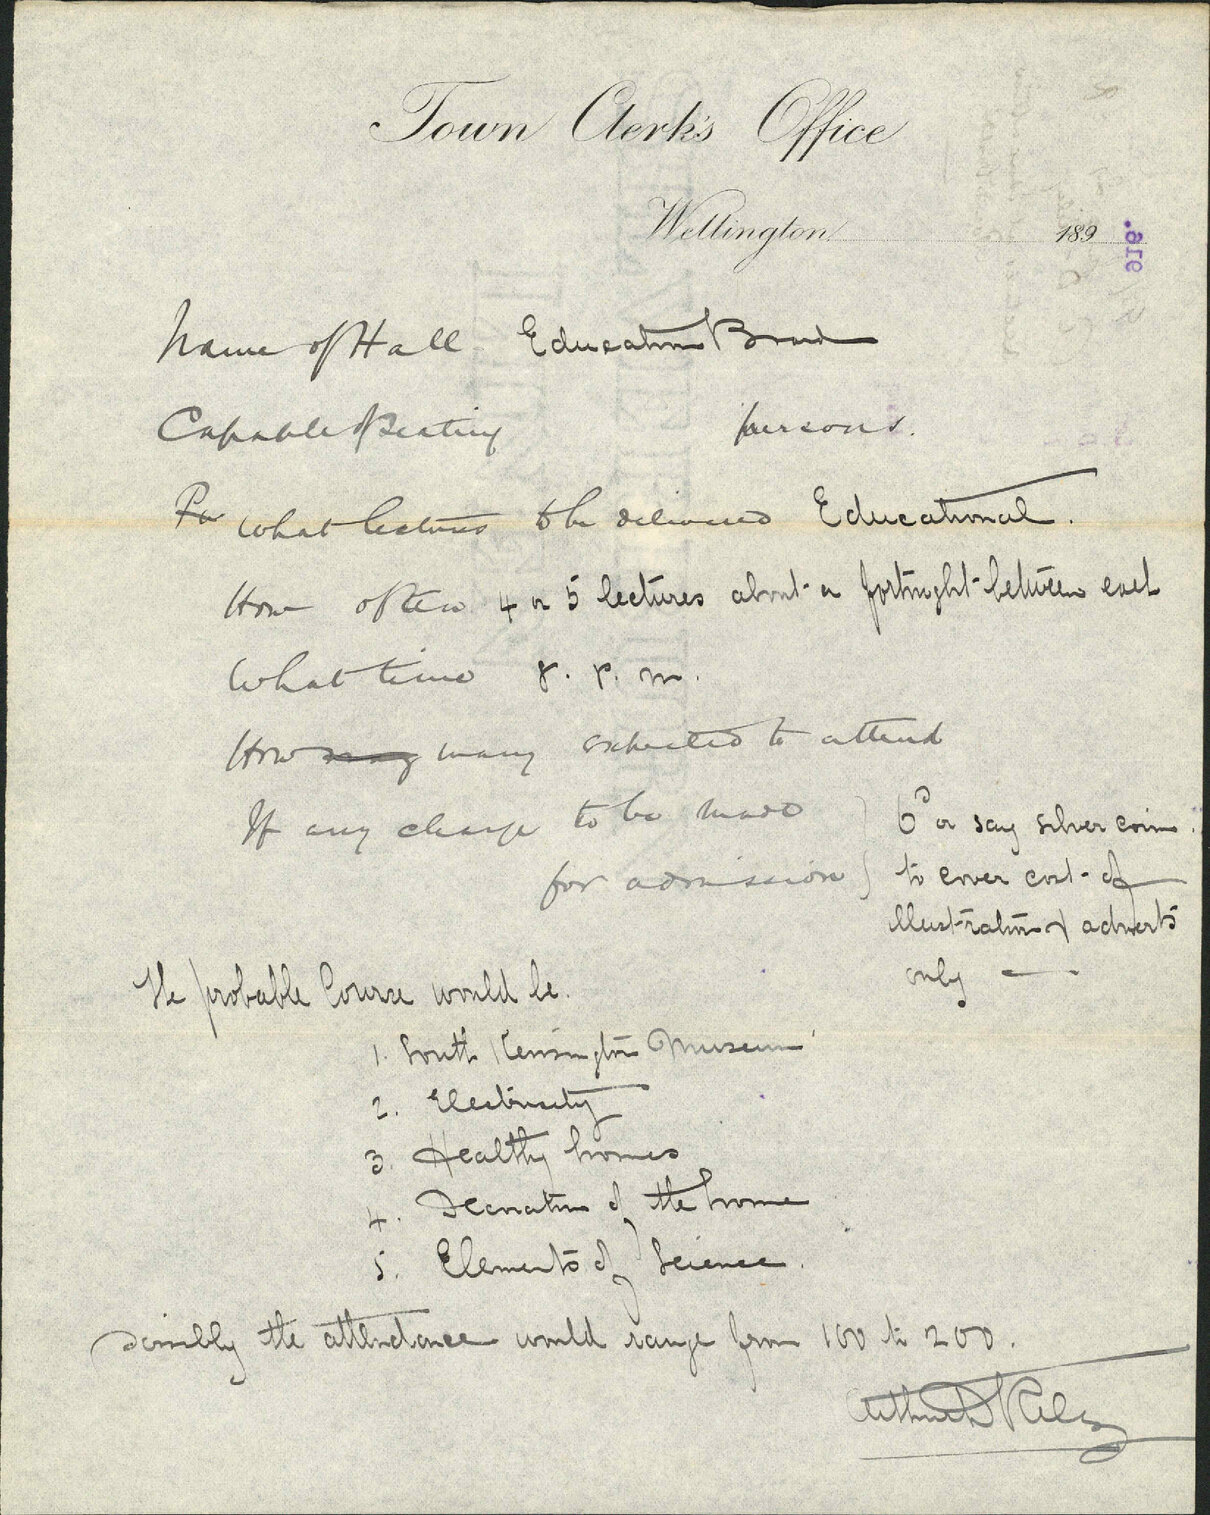 Town Clerk's Office
Wellington 189
916.
Name of Hall Education Board
Capable of Seating persons.
For what lectures to be delivered Educational.
How often 4 or 5 lectures about a fortnight between each
What time 8. P. m.
How many many expected to attend
If any charge to be made
for admission
6d or say silver coin
to cover cost of
illustration & adverts
only —
The probable Course would be.
1. South Kensington Museum
2. Electricity
3. Healthy homes
4. Decoration of the home
5. Elements of Science.
Possibly the attendance would range from 100 to 200.
Arthur D Riley